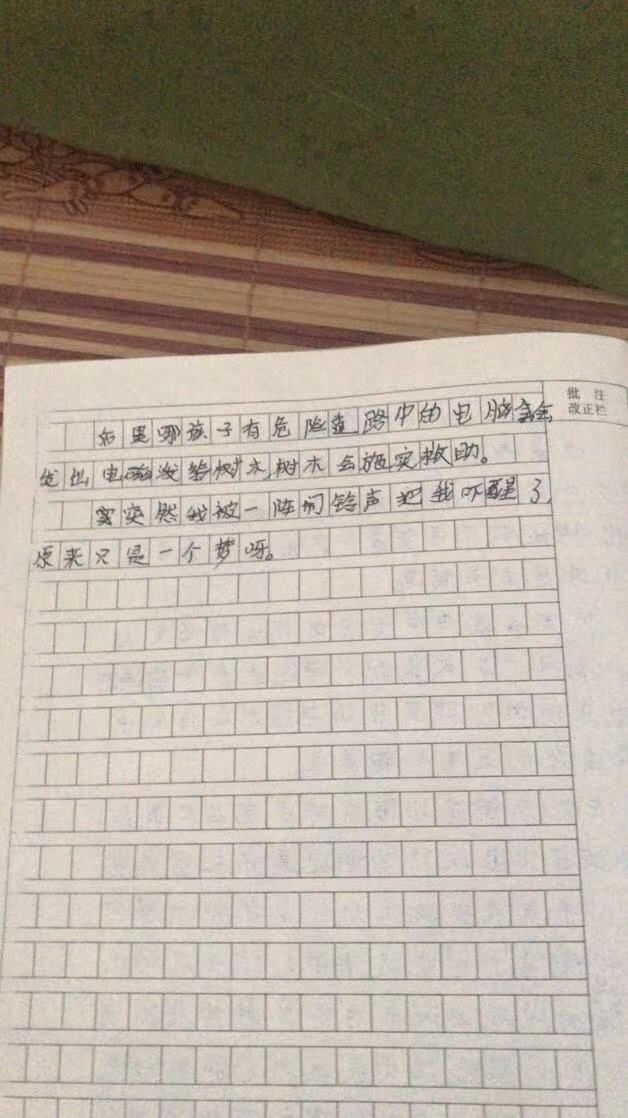 批 注
改正栏
如里哪孩子有危险 路中的电脑会
发出电磁波给树木,树木会施实救助。
突然我被一阵闹铃声把我吓醒了,
原来只是一个梦呀。